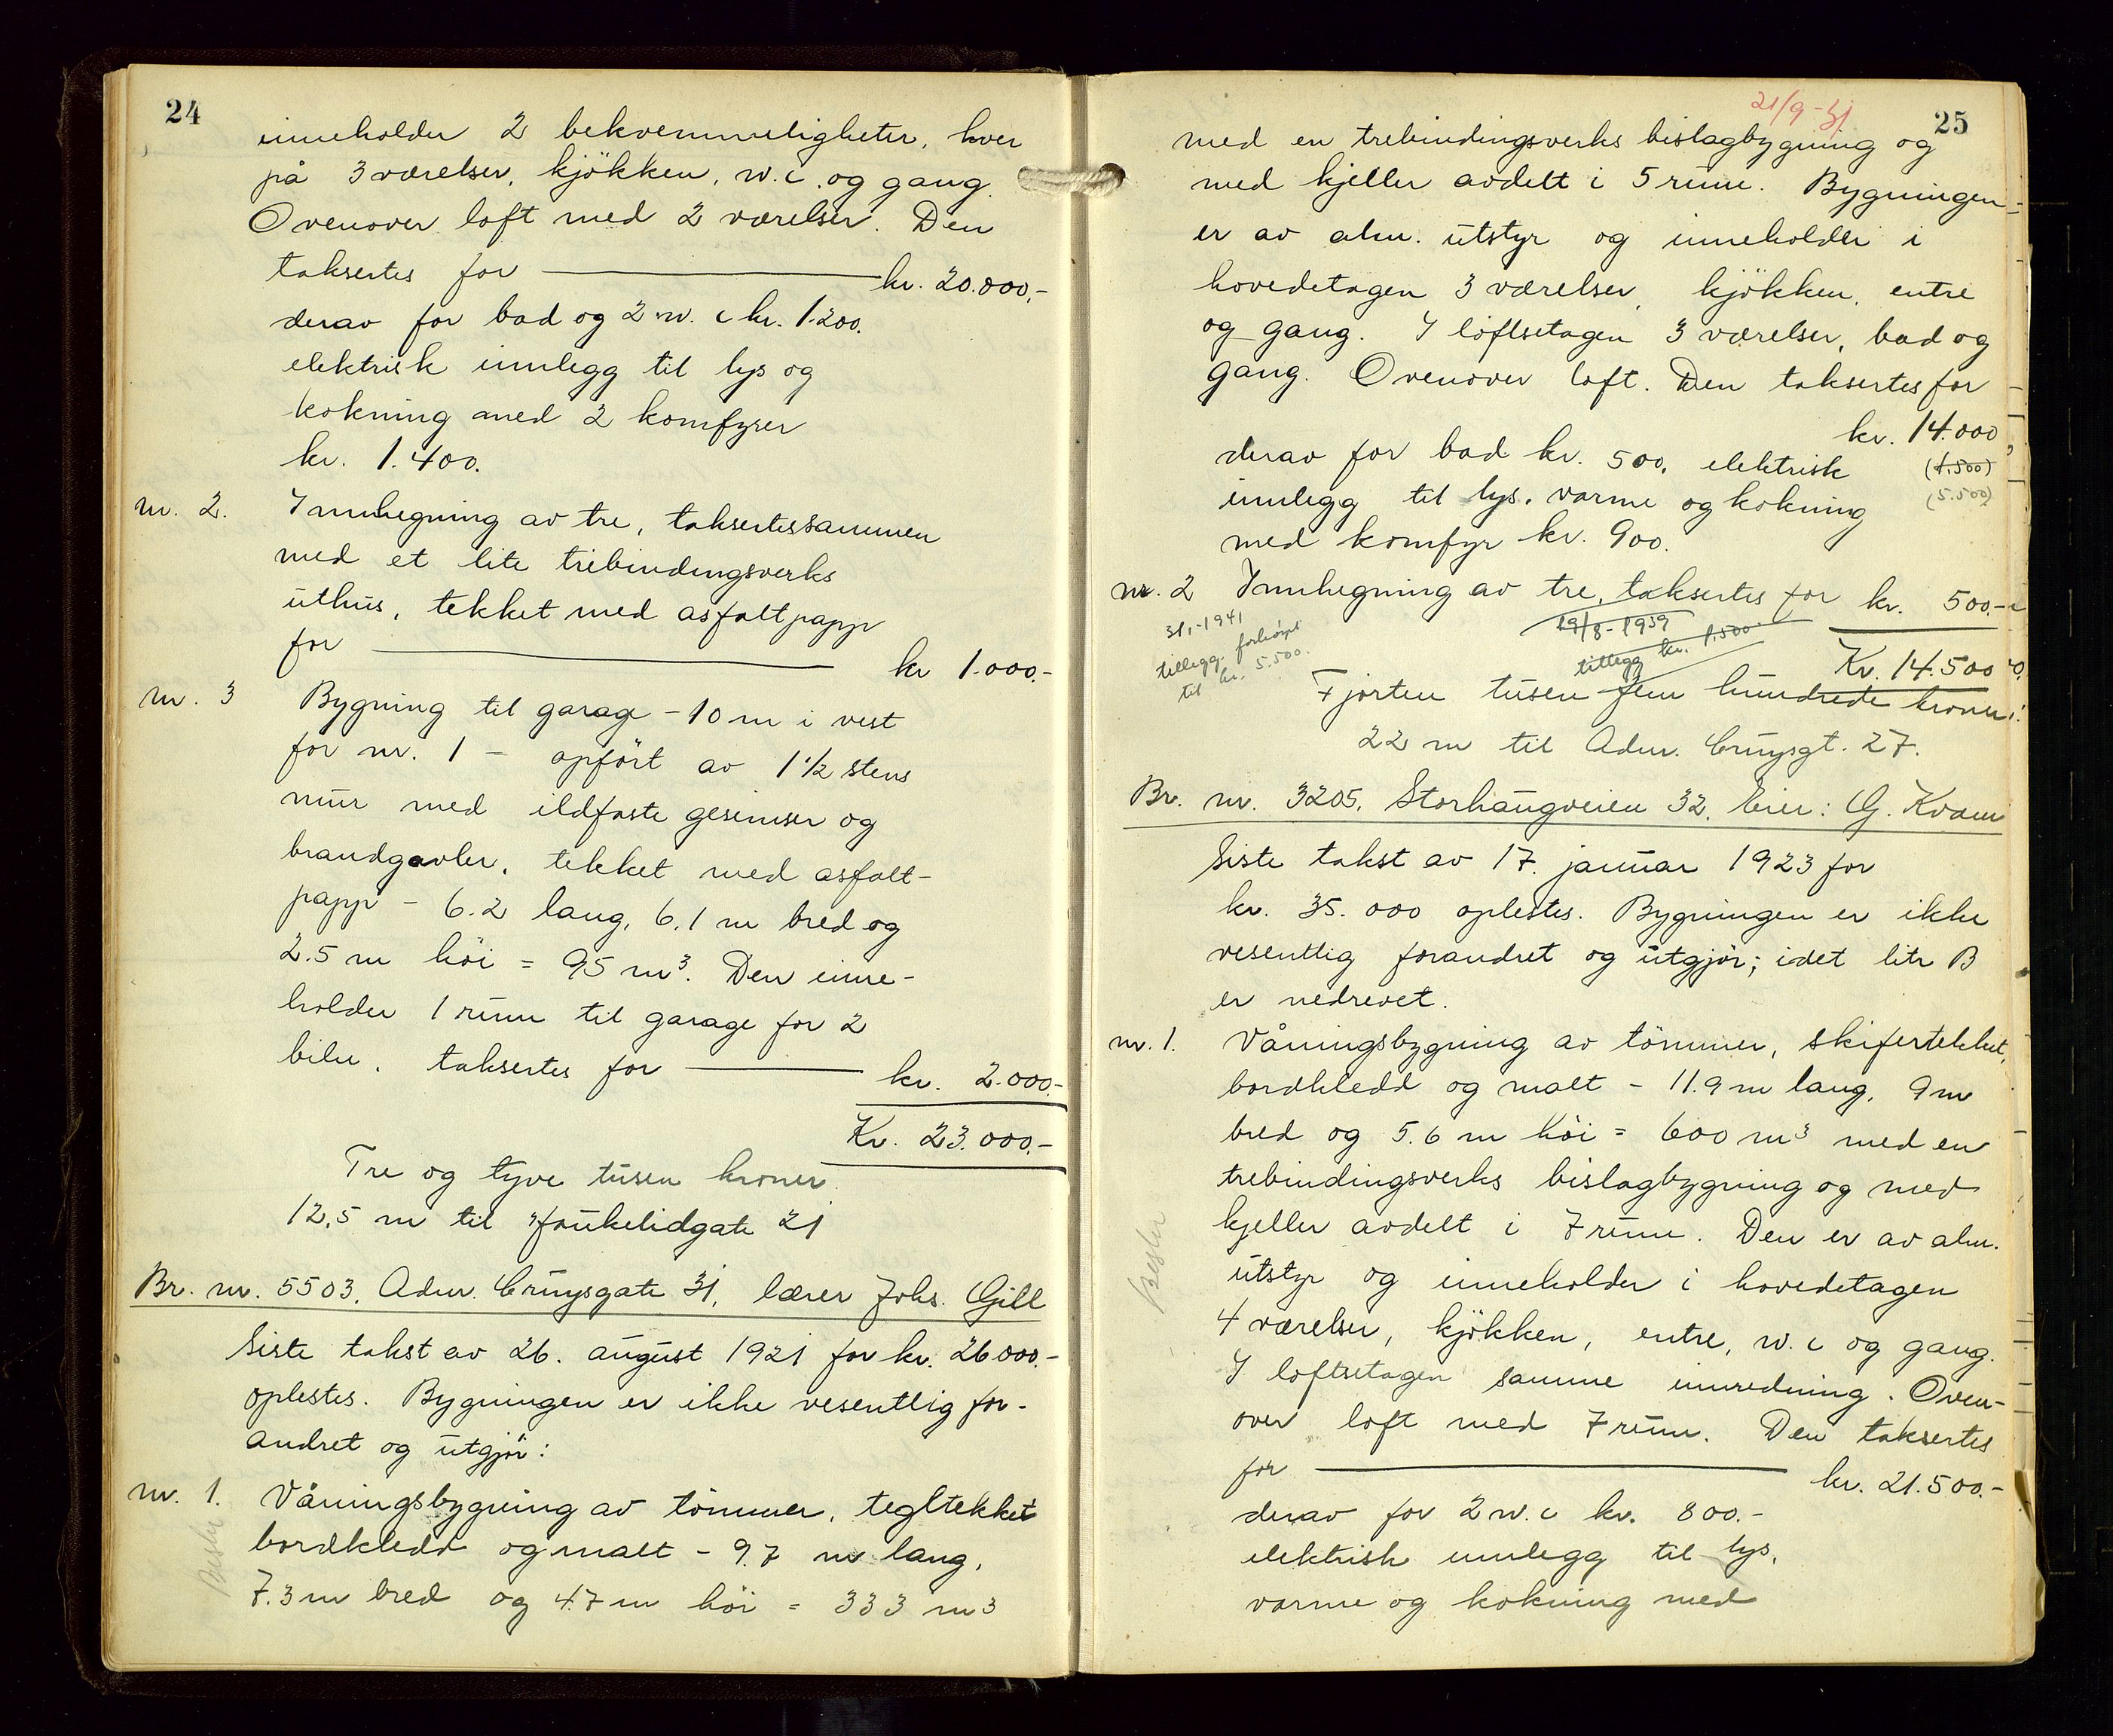 24
inneholder 2 bekvemmeligheter, hver
på 3 værelser, kjökken, w.c. og gang.
Ovenover loft med 2 værelser. Den
taksertes for kr. 20.000,-
derav for bad og 2 w.c kr. 1.200.
elektrisk innlegg til lys og
kokning med 2 komfyrer
kr. 1.400.
nr. 2. Innhegning av tre, taksertes sammen
med et lite trebindingsverks
uthus, tekket med asfaltpapp
for kr 1.000.-
nr. 3 Bygning til garage - 10 m i vest
for nr. 1 - opfört av 1 1/2 stens
mur med ildfaste gesimser og
brandgavler, tekket med asfalt-
papp - 6.2 lang, 6.1 m bred og
2.5 m höi = 95 m3. Den inne-
holder 1 rum til garage for 2
biler, taksertes for kr. 2.000.-
Kr. 23.000.-
Tre og tyve tusen kroner
12,5 m til Haukelidgate 21
Br. nr. 5503, Adm. Cruysgate 31, lærer Johs. Gill
Siste takst av 26. august 1921 for kr. 26.000.-
oplestes. Bygningen er ikke vesentlig for-
andret og utgjör:
nr. 1. Våningsbygning av tömmer, tegltekket
bordkledd og malt - 9.7 m lang,
7.3 m bred og 4.7 m höi = 333 m3
21/9-31
25
med en trebindingsverks bislagbygning og
med kjeller avdelt i 5 rum. Bygningen
er av alm. utstyr og inneholder i
hovedetagen 3 værelser, kjökken, entre
og gang. I loftsetagen 3 værelser, bad og
gang. Ovenover loft. Den taksertes for
kr. 14.000
derav for bad kr. 500, elektrisk (1.500)
innlegg til lys, varme og kokning (5.500)
med komfyr kr. 900.
nr. 2 Innhegning av tre, taksertes for kr. 500.-
31/1-1941
tillegg. forhöyet
til kr. 5.500.
19/8-1939
tillegg kr. 1.500
Kr. 14.500
Fjorten tusen fem hundrede kroner.
22 m til Adm. Cruysgt. 27.
Br. nr. 3205. Storhaugveien 32. Eier: G. Kvam
Siste takst av 17. januar 1923 for
kr. 35.000 oplestes. Bygningen er ikke
vesentlig forandret og utgjör; idet litr B
er nedrevet.
nr. 1. Våningsbygning av tömmer, skifertekket,
bordkledd og malt - 11.9 m lang, 9 m
bred og 5.6 m höi = 600 m3 med en
trebindingsverks bislagbygning og med
kjeller avdelt i 7 rum. Den er av alm.
utstyr og inneholder i hovedetagen
4 værelser, kjökken, entre, w.c og gang.
I loftsetagen samme innredning. Oven-
over loft med 7 rum. Den taksertes
for kr. 21.500.-
derav for 2 w.c kr. 800.-
elektrisk innlegg til lys,
varme og kokning med